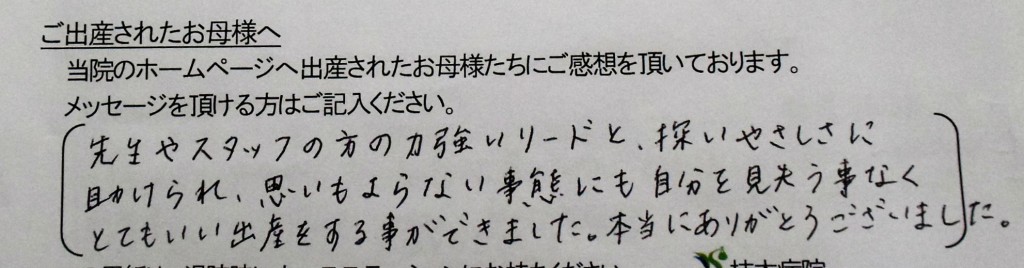 ご出産されたお母様へ
当院のホームページへ出産されたお母様たちにご感想を頂いております。
メッセージを頂ける方はご記入ください。
先生やスタッフの方の力強いリードと、深いやさしさに
助けられ、思いもよらない事態にも自分を見失う事なく
とてもいい出産をする事ができました。本当にありがとうございました。